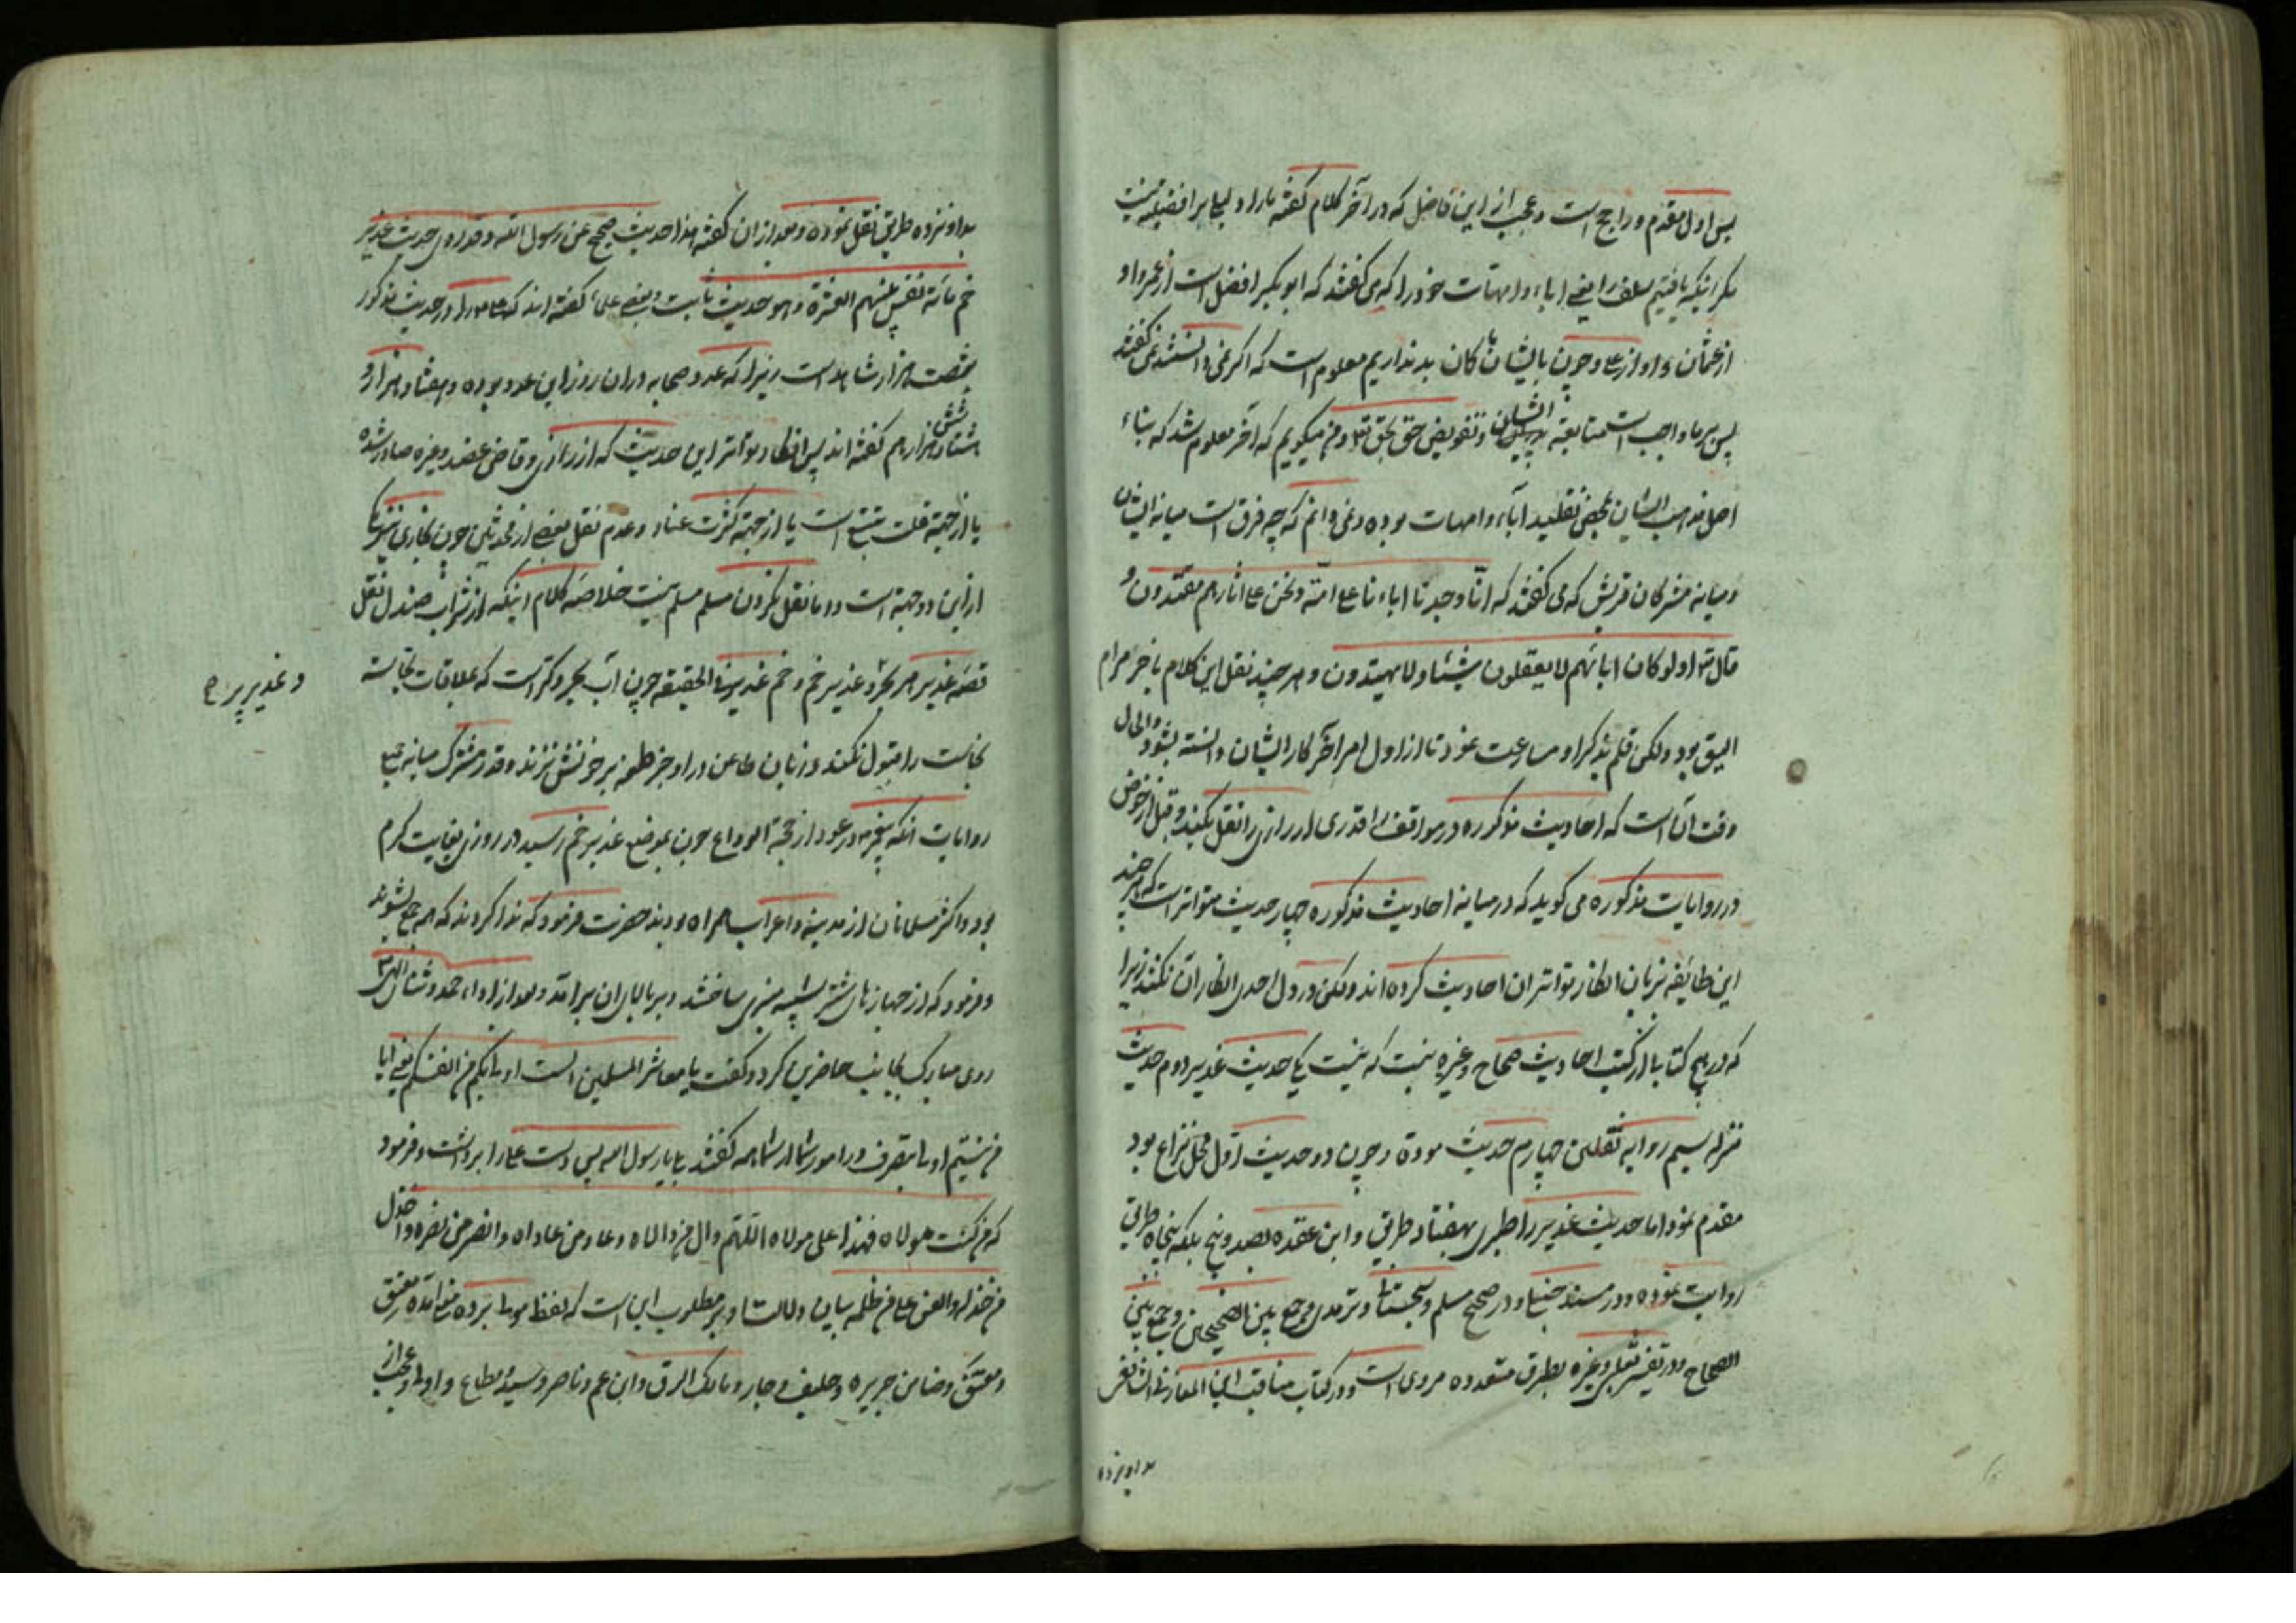 پس اول مقدم و راجح است و عجب از این فاضل که در آخر کلام گفته ما را دلیلی بر افضلیة نیست
مگر انیکه یافتیم سلف را یعنی اباء و امهات خود را که می گفتند که ابو بکر افضل است از عمر و او
از عثمان و او از علی و چون بایشان ما کان بد نداریم معلوم است که اگر نمی دانستند نمی گفتند
پس بر ما واجب است متابعة ایشان و تفویض حق بحق تع و من میگویم که آخر معلوم شد که بناء
اصل مذهب ایشان بمحض تقلید آباء و امهات بوده و نمی دانم که چه فرق است میانه ایشان
و میانه مشرکان قریش که می گفتند که انا وجدنا اباءنا علی امة و نحن علی اثارهم مقتدون و
قال تع اولو کان اباءهم لا یعقلون شیئا و لا یهتدون و هر چند نقل این کلام باخر مرام
الیق بود ولکن قلم بذکر او مسارعت نمود تا از اول امر آخر کار ایشان دانسته بشود والحال
وقت آن است که احادیث مذکوره در مواقف را قدری از رازی را نقل بکنیم و قبل از خوض
در روایات مذکوره می گوید که در میانه احادیث مذکوره چهار حدیث متواتر است که هر چند
این طایفه بزبان انکار تواتر ان احادیث کرده اند ولکن در دل احدی انکار ان نکند زیرا
که در هیچ کتابی از کتب احادیث صحاح و غیره نیست که نیست یکی حدیث غدیر دوم حدیث
منزله سیم روایه ثقلین چهارم حدیث مودة و چون دو حدیث اول محل نزاع بود
مقدم نمود اما حدیث غدیر را طبری بهفتاد طریق و ابن عقده بصد و پنج بلکه پنجاه طریق
روایت نموده و در مسند حنبل و در صحیح مسلم و سجستانی و ترمدی و جمع بین الصحیحین و جمع بین
الصحاح و در تفسیر ثعلبی و غیره بطرق متعدده مروی است و در کتاب مناقب ابن المغازلی الشافعی
بدوازده
بدوازده طریق نقل نموده و بعد از ان گفته هذا حدیث صحیح عن رسول الله و قد روی حدیث غدیر
خم مائة نفس منهم العشرة و هو حدیث ثابت و بعضی علماء گفته اند که علی را در حدیث مذکور
شصت هزار شاهد است زیرا که عدد صحابه در ان روز این عدد بوده و هفتاد هزار و
هشتاد و شش هزار هم گفته اند پس انکار تواتر این حدیث که از رازی و قاضی عضد و غیره صادر شده
یا از جهة قلت تتبع است یا از جهة کثرت عناد و عدم نقل بعضی از محدثین چون بخاری نیز یکی
از این دو جهة است و اما نقل نکردن مسلم مسلم نیست خلاصه کلام اینکه از شراب صندل نقل
قصه غدیر هر بحر و غدیر خم و خم غدیر فی الحقیقه چون آب بحر و کر است که بملاقات نجاسة
و غدیر پر ح
نجاست را قبول نکند و زبان طاعن در او جز طعمه بر خوانش نزند و قدر مشترک میانه جمیع
روایات انکه پیغمبر در عود از حجة الوداع چون بموضع غدیر خم رسید در روزی بغایت گرم
بود و اکثر مسلمانان از مدینه و اعراب همراه بودند حضرت فرمود که ندا کردند که همه جمع بشوند
و فرمود که از جهازهای شتر شبیه منبری ساختند و بر بالای ان برامد و بعد از اداء حمد و ثنای الهی
روی مبارک بجانب حاضرین کرد و گفت یا معاشر المسلمین الست اولی بکم من انفسکم یعنی ایا
من نیستم اولی بتصرف در امور شما از شما همه گفتند بلی یا رسول الله پس دست علی را برداشت و فرمود
که من کنت مولاه فهذا علی مولاه اللهم وال من والاه و عاد من عاداه و انصر من نصره و اخذل
من خذله و العن علی من ظلمه بیان دلالت او بر مطلوب این است که لفظ مولی بر ده معنی آمده معتق
و معتق و ضامن جریره و حلیف و جار و مالک الرق و ابن عم و ناصر و سید مطاع و اولی و عجب از